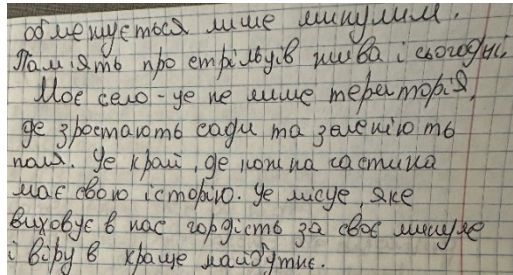 обмежується лише минулим.
Пам'ять про стрільців жива і сьогодні.
Моє село - це не лише територія,
де зростають сади та зеленіють
поля. Це край, де кожна частина
має свою історію. Це місце, яке
виховує в нас гордість за своє минуле
і віру в краще майбутнє.